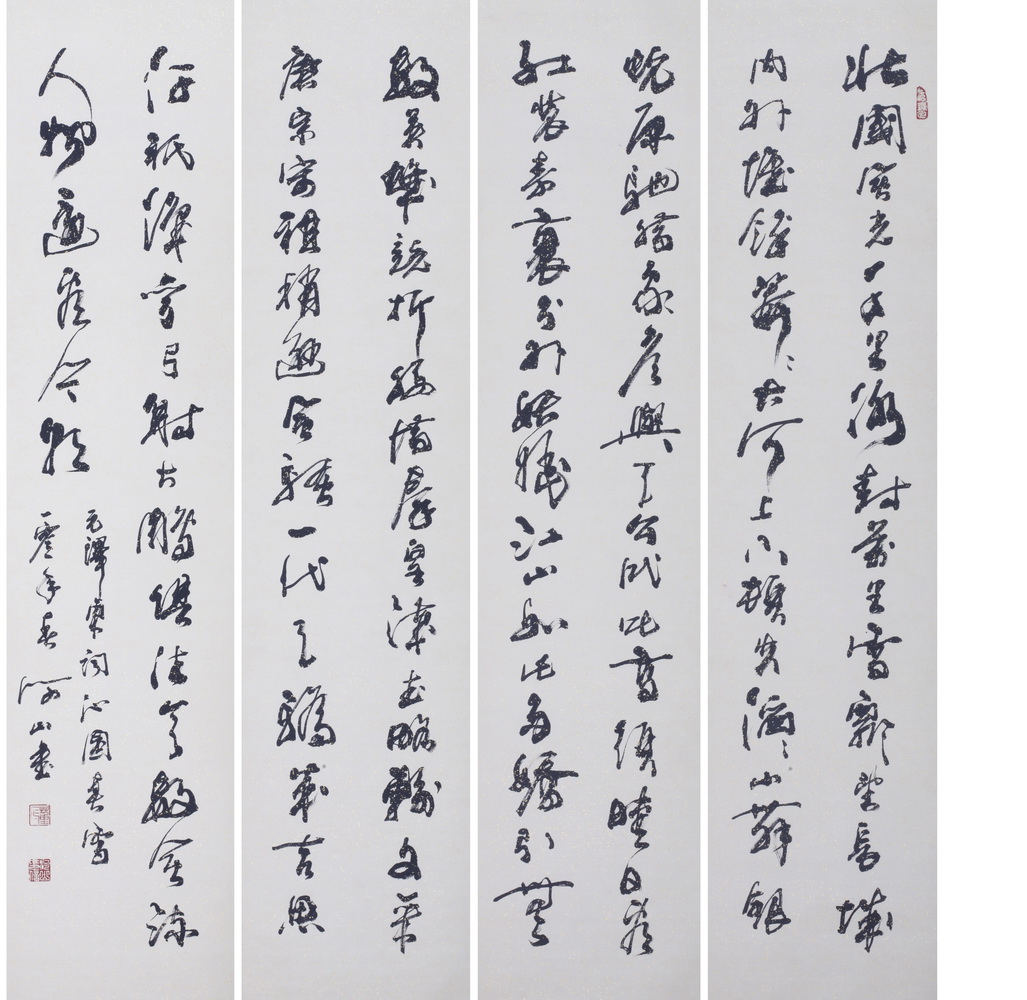 北國風光千里冰封萬里雪飄望長城
內外惟餘莽〻大河上下頓失滔〻山舞銀
蛇原馳蠟象欲與天公試比高須晴日看
紅裝素裹分外妖嬈江山如此多嬌引無
數英雄競折腰惜秦皇漢武略輸文采
唐宗宋祖稍遜風騷一代天驕成吉思
汗祇識彎弓射大鵰俱往矣數風流
人物還看今朝
毛澤東詞沁園春雪
一零年春 山書